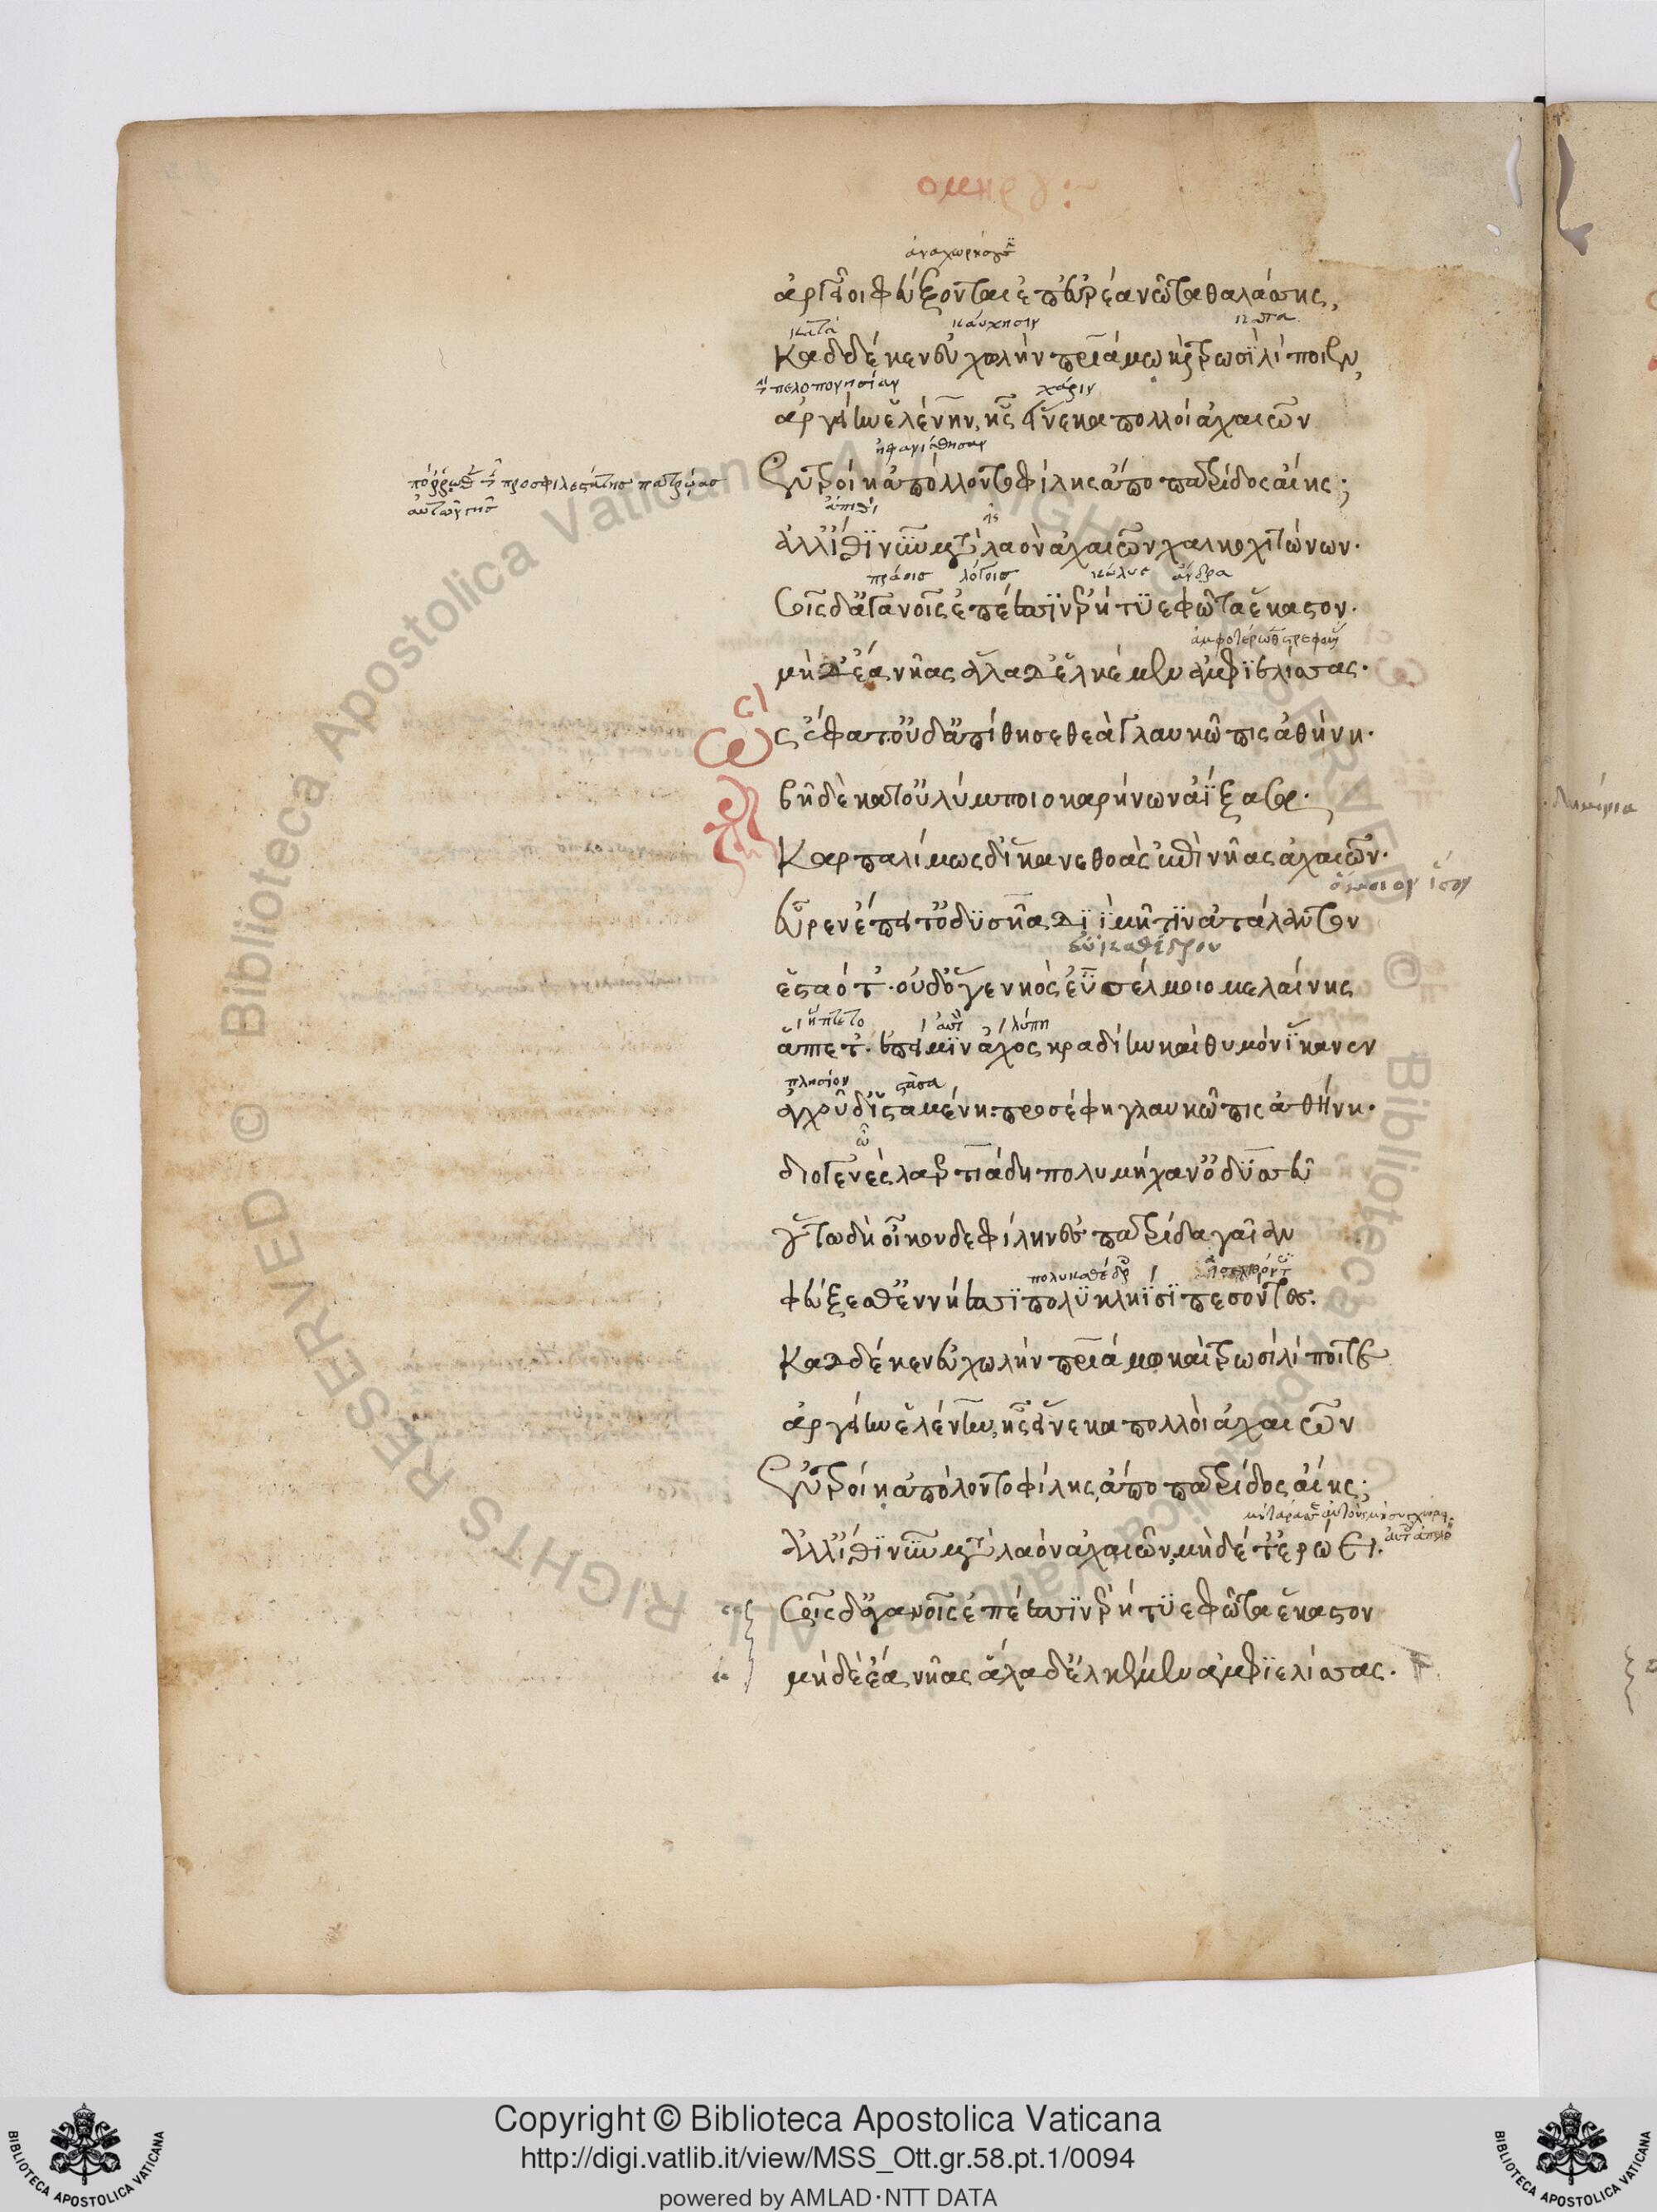 ἀναχωρήσουσι
ἀργεῖοι φεύξονται ἐπ' εὐρέα νῶτα θαλάσσης,
κατὰ καύχησιν κατα
Καδδέ κεν εὐχωλὴν πριάμω κ τρωσὶ λίποιεν,
τὴν πελοπονησίαν χάριν
ἀργείην ἑλένην, ἧς εἵνεκα πολλοὶ ἀχαιῶν
ἠφανίσθησαν
ἐν τροίη ἀπόλλοντο φίλης ἀπὸ πατρίδος αἴης;
πόρρωθεν τῆς προσφιλεστάτης πατρώας
αὐτῶν γῆς
ἄπιθι
ἀλλ' ἴθι νῦν μετὰ λαὸν ἀχαιῶν χαλκοχιτώνων.
πράοις λόγοις κώλυε ἄνδρα
σοῖς δ' ἀγανοῖς ἐπέεσσιν ἐρήτυε φῶτα ἕκαστον.
ἀμφοτέρωθεν στρεφομένας
μὴ δ' ἔα νῆας ἅλα δ' ἑλκέμεν ἀμφιελίσσας.
ὣς ἔφατ' οὐδ' ἀπίθησε θεὰ γλαυκῶπις ἀθήνη.
βῆ δὲ κατ' οὐλύμποιο καρήνων ἀΐξασα.
Καρπαλίμως δ' ἵκανε θοὰς ἐπὶ νῆας ἀχαιῶν.
ὅμοιον ἴσον
εὗρεν ἔπειτ' ὀδυσῆα διῒ μῆτιν ἀτάλαντον
εὐκαθέδρου
ἑσταότ'. οὐδ' ὅγε νηὸς ἐϋσέλμοιο μελαίνης
ἥπτετο αὐτὸν λύπη
ἅπτετ'. ἐπεί μιν ἄχος κραδίην καὶ θυμὸν ἵκανεν
πλησίον στᾶσα
ἀγχοῦ δ' ἱσταμένη προσέφη γλαυκῶπις ἀθήνη.
ὦ
διογενὲς λαερτιάδη πολυμήχαν' ὀδυσσεῦ
οὕτω δὴ οἶκον δε φίλην ἐς πατρίδα γαῖαν
πολυκαθέδροις
φεύξεσθ' ἐν νήεσσι πολυκλήϊσι πεσόντες.
Καδδέ κεν εὐχωλὴν πριάμω καὶ τρωσὶ λίποιτε
ἀργείην ἑλένην, ἧς εἵνεκα πολλοὶ ἀχαιῶν
ἐν τροίη ἀπόλοντο φίλης ἀπὸ πατρίδος αἴης;
ἀλλ' ἴθι νῦν μετὰ λαὸν ἀχαιῶν, μὴ δέ τ' ἐρώει.
σοῖς δ' ἀγανοῖς ἐπέεσσιν ἐρήτυε φῶτα ἕκαστον
μὴ δὲ ἔα νῆας ἅλα δ' ἑλκέμεν ἀμφιελίσσας.
Copyright © Biblioteca Apostolica Vaticana
http://digi.vatlib.it/view/MSS_Ott.gr.58.pt.1/0094
powered by AMLAD·NTT DATA
BIBLIOTECA APOSTOLICA VATICANA
BIBLIOTECA APOSTOLICA VATICANA